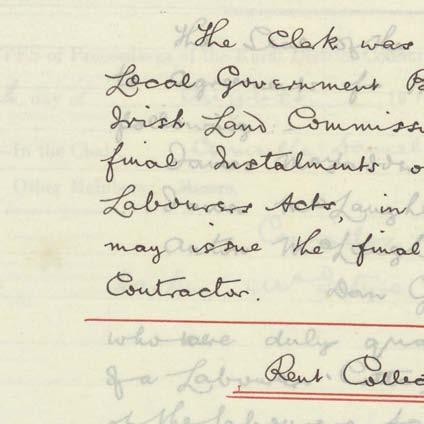 The Clerk was
Local Government B
Irish Land Commiss
final Instalments o
Labourers Acts, in
may issue the final
Contractor.
Rent Collec